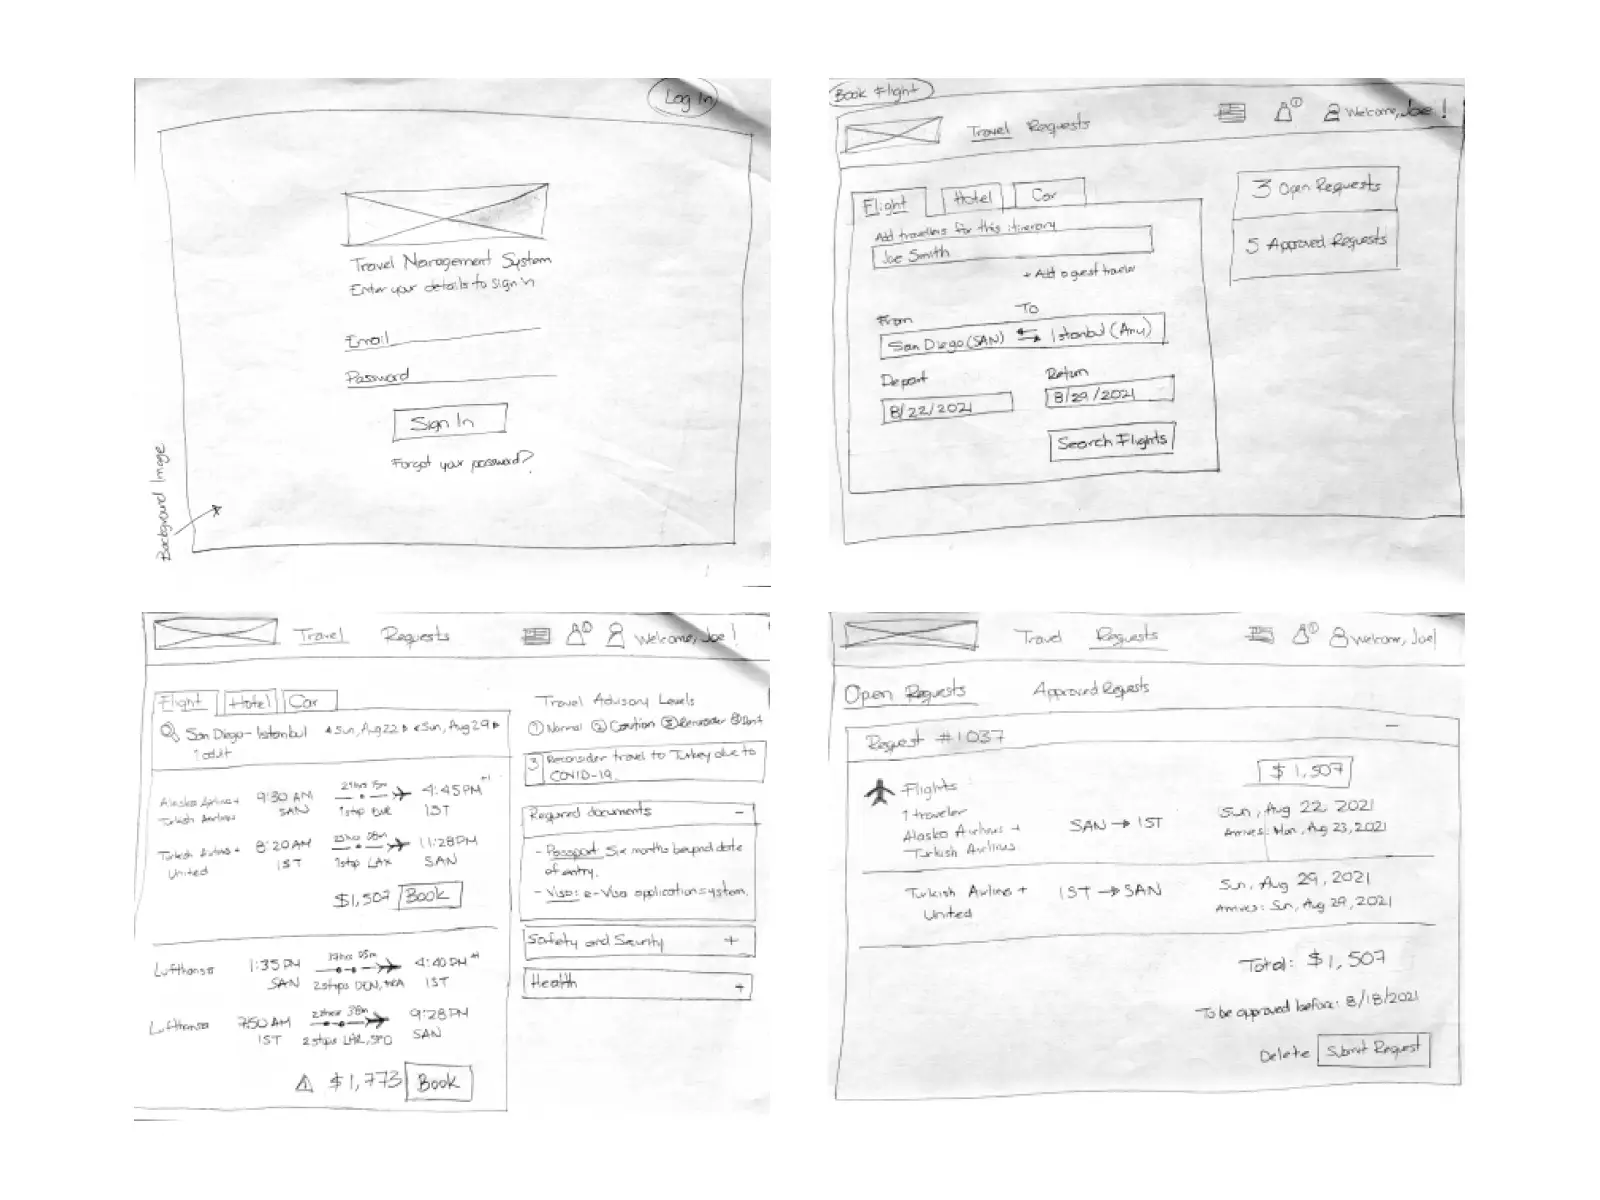 Log In
Travel Management System
Enter your details to sign in
Email
Password
Sign In
Forgot your password?
Background Image
Book Flight
Travel Requests
Welcome, Joe!
Flight Hotel Car
Add travellers for this itinerary
Joe Smith
+ Add a guest traveler
From To
San Diego (SAN) Istanbul (Any)
Depart Return
8/22/2021 8/29/2021
Search Flights
3 Open Requests
5 Approved Requests
Travel Requests Welcome, Joe!
Flight Hotel Car
San Diego - Istanbul Sun, Aug 22 Sun, Aug 29
1 adult
Alaska Airlines + 9:30 AM 15m 4:45 PM +1
Turkish Airlines SAN 1 stop IST
Turkish Airlines + 8:20 AM 08m 11:28 PM
United IST 1 stop LAX SAN
$1,507 Book
Lufthansa 1:35 PM 05m 4:40 PM +1
SAN 2 stops DEN, IST
Lufthansa 7:50 AM 38m 9:28 PM
IST 2 stops SAN
$1,773 Book
Travel Advisory Levels
1 Normal 2 Caution 3 Reconsider 4 Don't
3 Reconsider travel to Turkey due to
COVID-19.
Required documents -
- Passport Six months beyond date
of entry.
- Visa: e-Visa application system.
Safety and Security +
Health +
Travel Requests Welcome, Joe!
Open Requests Approved Requests
Request #1037 -
$1,507
Flights
1 traveler
Alaska Airlines + SAN → IST Sun, Aug 22 2021
Turkish Airlines Arrives: Mon, Aug 23, 2021
Turkish Airlines + IST → SAN Sun, Aug 29, 2021
United Arrives: Sun, Aug 29, 2021
Total: $1,507
To be approved before: 8/18/2021
Delete Submit Request